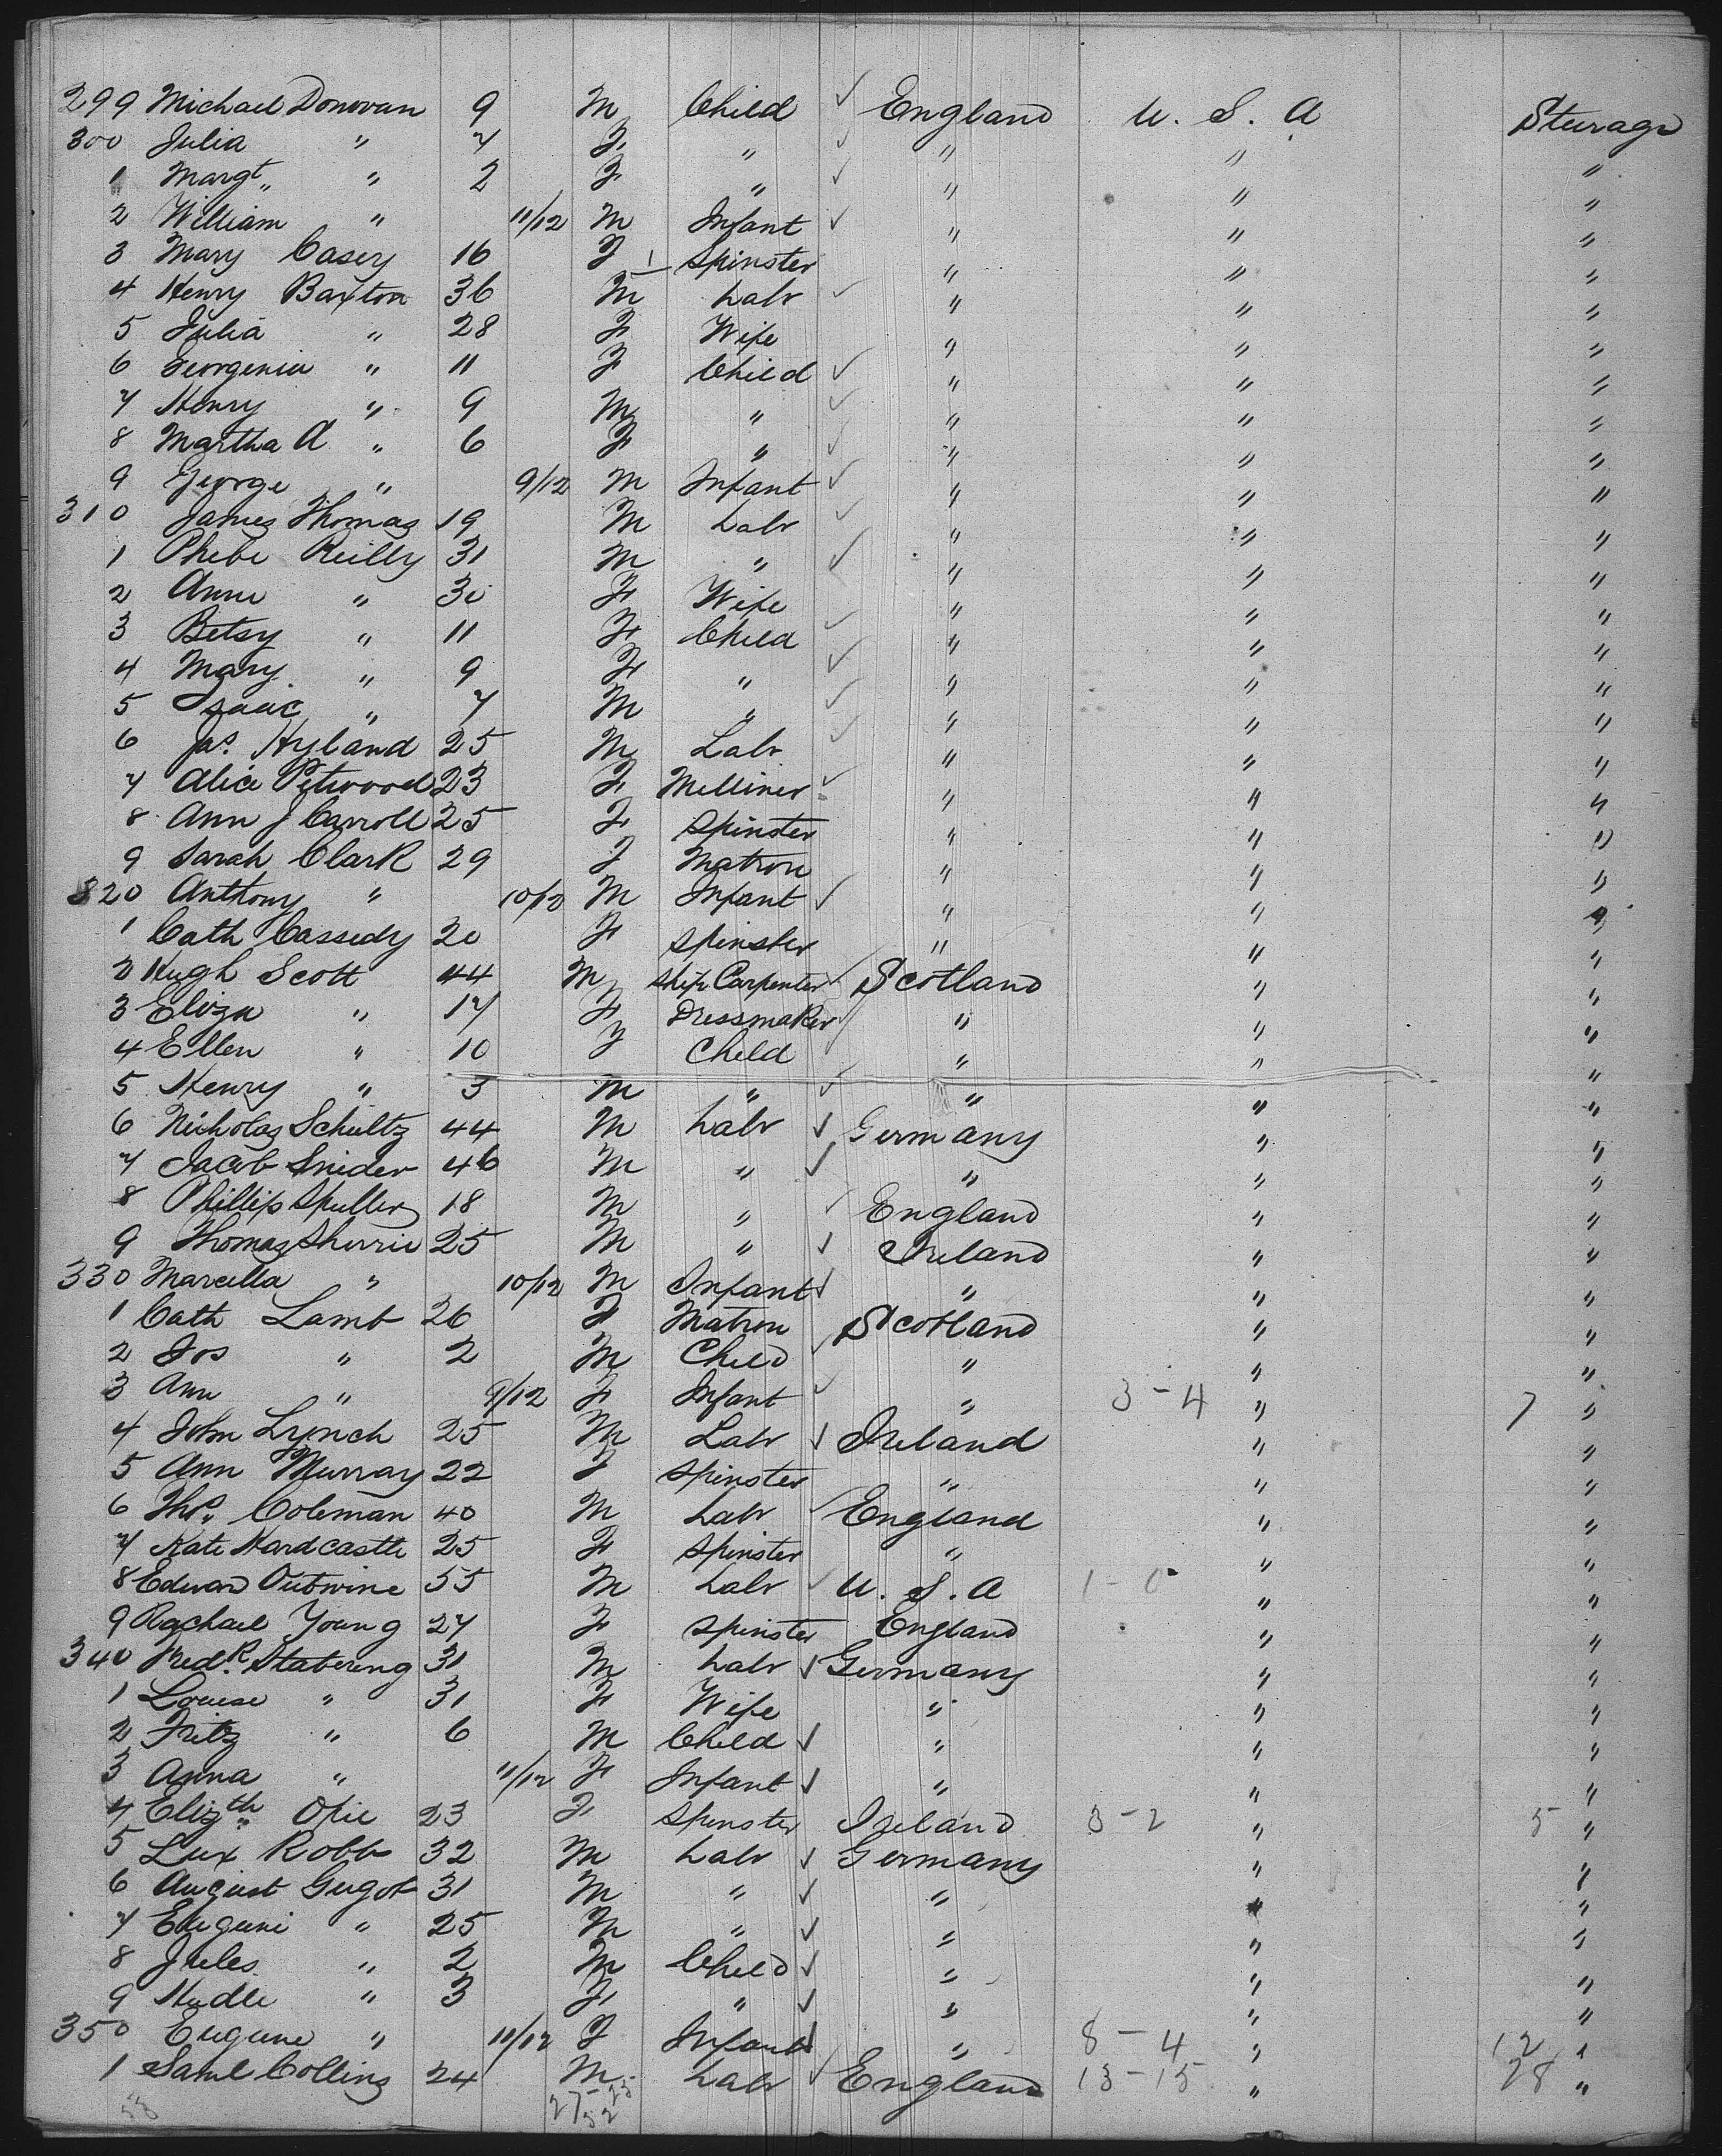 299 Michael Donovan 9 M Child ✓ England U. S. A Sturage
300 Julia " 7 F " ✓ " " "
1 Margt " 2 F " ✓ " " "
2 William " 11/12 M Infant ✓ " " "
3 Mary Casey 16 F 1 Spinster " " "
4 Henry Baxton 36 M Labr ✓ " " "
5 Julia " 28 F Wife " " "
6 Georgenia " 11 F Child ✓ " " "
7 Henry " 9 M " ✓ " " "
8 Martha A " 6 F " ✓ " " "
9 George " 9/12 M Infant ✓ " " "
310 James Thomas 19 M Labr ✓ " " "
1 Phebe Reilly 31 M " ✓ " " "
2 Anne " 30 F Wife " " "
3 Betsy " 11 F Child ✓ " " "
4 Mary " 9 F " ✓ " " "
5 Isaac " 7 M " ✓ " " "
6 Jas. Hyland 25 M Labr ✓ " " "
7 Alice Petwood 23 F Milliner ✓ " " "
8 Ann J Carroll 25 F Spinster " " "
9 Sarah Clark 29 F Matron " " "
320 Anthony " 10/12 M Infant ✓ " " "
1 Cath Cassedy 20 F Spinster " " "
2 Hugh Scott 44 M Ship Carpenter ✓ Scotland " "
3 Eliza " 17 F Dressmaker ✓ " " "
4 Ellen " 10 F Child ✓ " " "
5 Henry " 3 M " ✓ " " "
6 Nicholas Schultz 44 M Labr ✓ Germany " "
7 Jacob Snider 46 M " ✓ " " "
8 Phillip Spuller 18 M " ✓ England " "
9 Thomas Sherrie 25 M " ✓ Ireland " "
330 Marcella " 10/12 M Infant ✓ " " "
1 Cath Lamb 26 F Matron Scotland " "
2 Jos " 2 M Child ✓ " " "
3 Ann " 9/12 F Infant ✓ " 3-4 " 7 "
4 John Lynch 25 M Labr ✓ Ireland " "
5 Ann Murray 22 F Spinster " " "
6 Thos. Coleman 40 M Labr ✓ England " "
7 Kate Hardcastle 25 F Spinster " " "
8 Edward Outwine 55 M Labr ✓ U. S. A 1-0 " "
9 Rachael Young 27 F Spinster England " "
340 Fredk. Stabering 31 M Labr ✓ Germany " "
1 Louise " 31 F Wife " " "
2 Fritz " 6 M Child ✓ " " "
3 Anna " 11/12 F Infant ✓ " " "
4 Elizth Opie 23 F Spinster Ireland 3-2 " 5 "
5 Lux Robb 32 M Labr ✓ Germany " "
6 August Gugot 31 M " ✓ " " "
7 Euguni " 25 M " ✓ " " "
8 Jules " 2 M Child ✓ " " "
9 " 3 F " ✓ " " "
350 Eugune " 11/12 F Infant ✓ " 8-4 " 12 "
1 Saml Collins 24 M Labr ✓ England 13-15 " 28 "
27-25
52